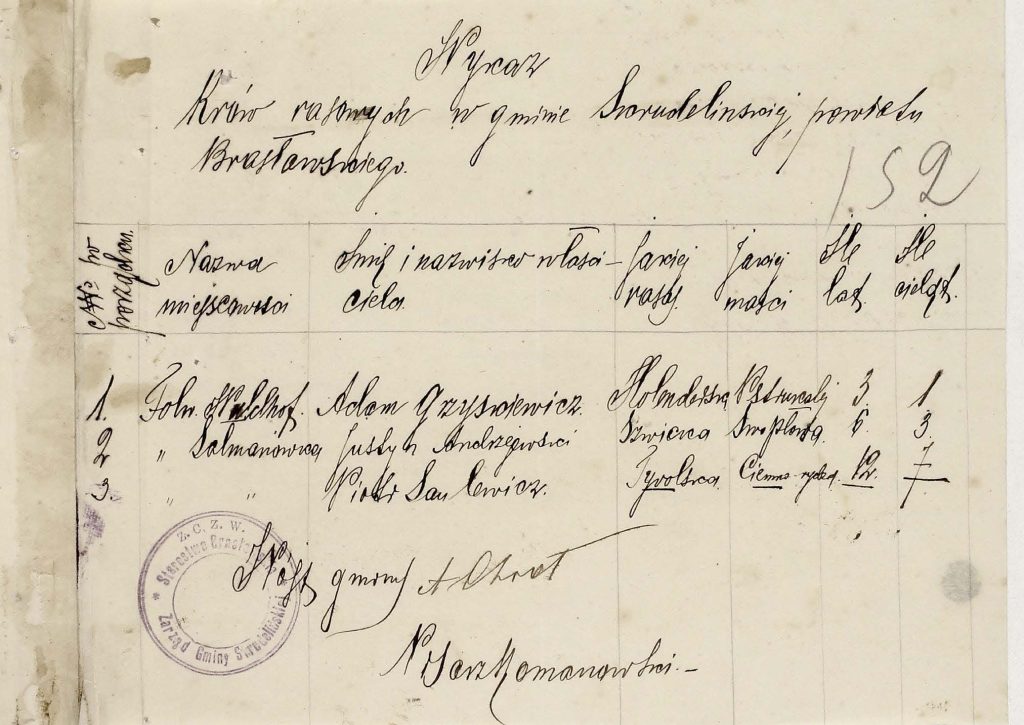 Wykaz
Krów rasowych w gminie Smrudelinskiej, powiatu
Brasławskiego.
152
№№ po porządku.
Nazwa miejscowości
Imię i nazwisko właściciela
Jakiej rasy.
Jakiej maści
Ile lat.
Ile cieląt.
1. Folw. Adam Gzyskiewicz. Holenderska 3. 1
2 " Salmanówka Justyn Andrzejewski Szwicka 6 3
3. " " Piotr Saulewicz. Tyrolska Ciemno-ryda. 12. 7
Z. C. Z. W.
Starostwo Brasław
Zarząd Gminy
Wójt gminy
Pisarz Romanowski.-